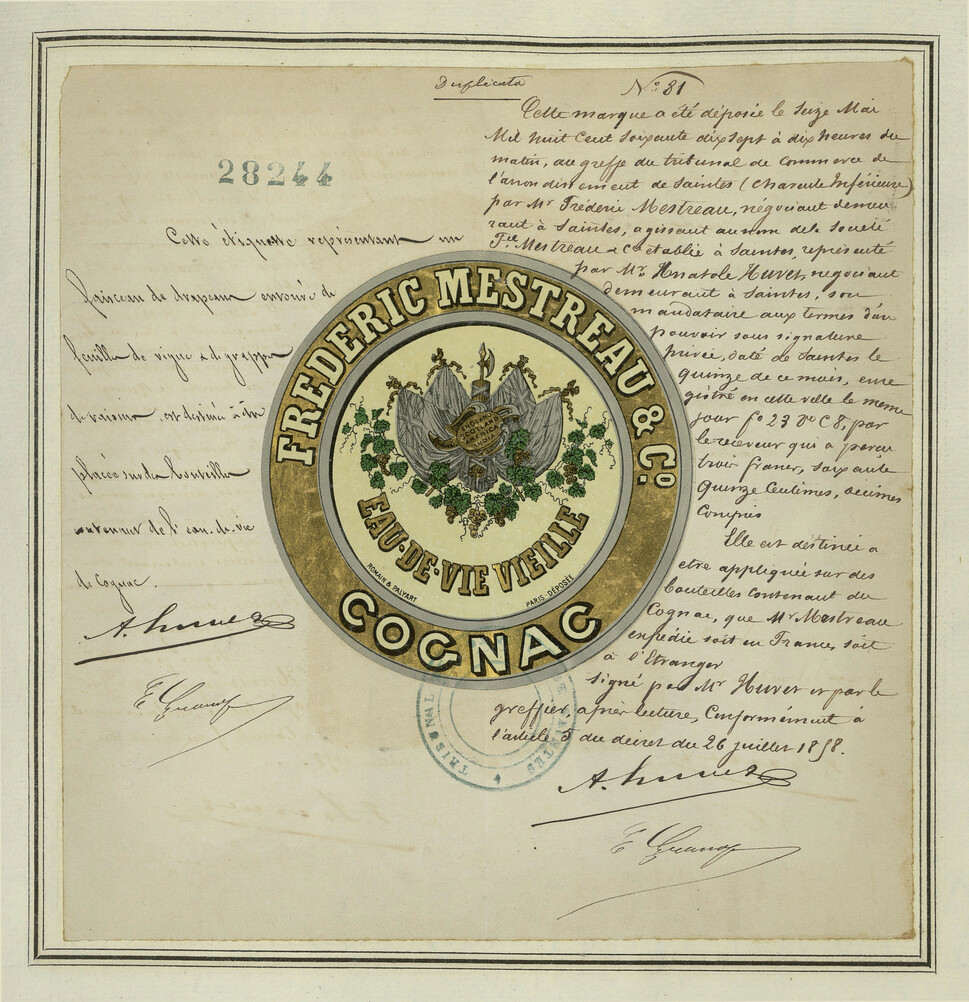 Duplicata
N° 81
28244
Cette marque a été déposée le Seize Mai
Mil huit Cent Soixante dix Sept à dix heures du
matin, au greffe du tribunal de Commerce de
l'arrondissement de Saintes (Charente Inférieure)
par Mr Frédéric Mestreau, négociant demeu
rant à Saintes, agissant au nom de la Société
Fric Mestreau & Co établie à Saintes, représenté
par Mr Anatole Huvet, négociant
demeurant à Saintes, son
mandataire aux termes d'un
pouvoir sous signature
privée, daté de Saintes le
quinze de ce mois, enre
gistré en cette ville le meme
jour fo 23 Vo C 8, par
le receveur qui a perçu
trois francs, soixante
Quinze Centimes, décimes
Compris
Elle est destinée a
etre appliquée sur des
bouteilles Contenant du
Cognac, que Mr Mestreau
expédie soit en France, soit
à l'Etranger
Signé par Mr Huvet et par le
greffier, après lecture, Conformément à
l'article 5 du décret du 26 juillet 1858.
A. Huvet
Cette étiquette représentant un
faisceau de drapeaux entouré de
feuilles de vigne & de grappes
de raisin, est destinée à être
placée sur des bouteilles
contenant de l'eau-de-vie
de Cognac.
A. Huvet
FREDERIC MESTREAU & Co.
ENGLAND
SCOTLAND
AMERICA
INDIA
EAU-DE-VIE VIEILLE
ROMAIN & PALYART
PARIS - DÉPOSÉE
COGNAC
TRIBUNAL
SAINTES